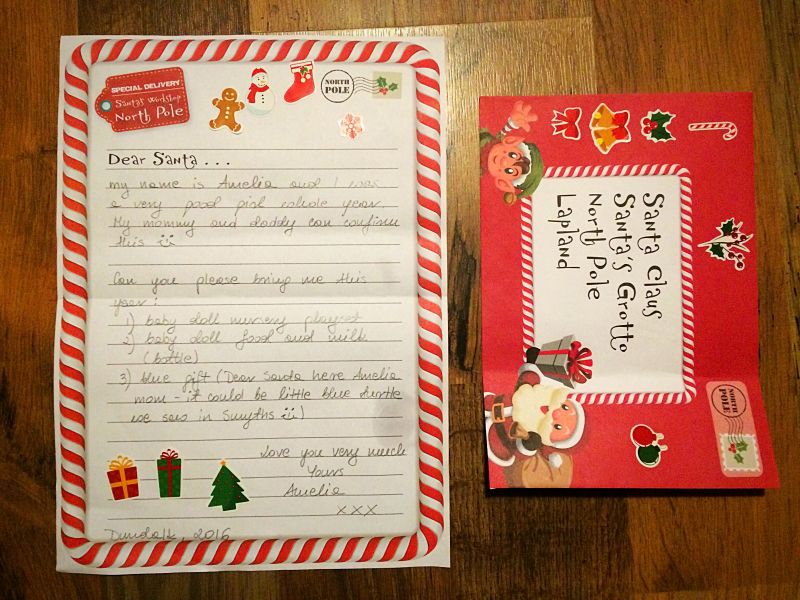 SPECIAL DELIVERY
Santa's Workshop
North Pole
NORTH
POLE
Dear Santa...
my name is Amelia and I was
a very good girl whole year.
My mommy and daddy can confirm
this
Can you please bring me this
year:
1) baby doll nursery playset
2) baby doll food and milk
(bottle)
3) blue gift (Dear Santa here Amelia
mom - it could be little blue turtle
we saw in Smyths )
Love you very much
Yours
Amelia
xxx
Dundalk, 2016
Santa Claus
Santa's Grotto
North Pole
Lapland
NORTH
POLE